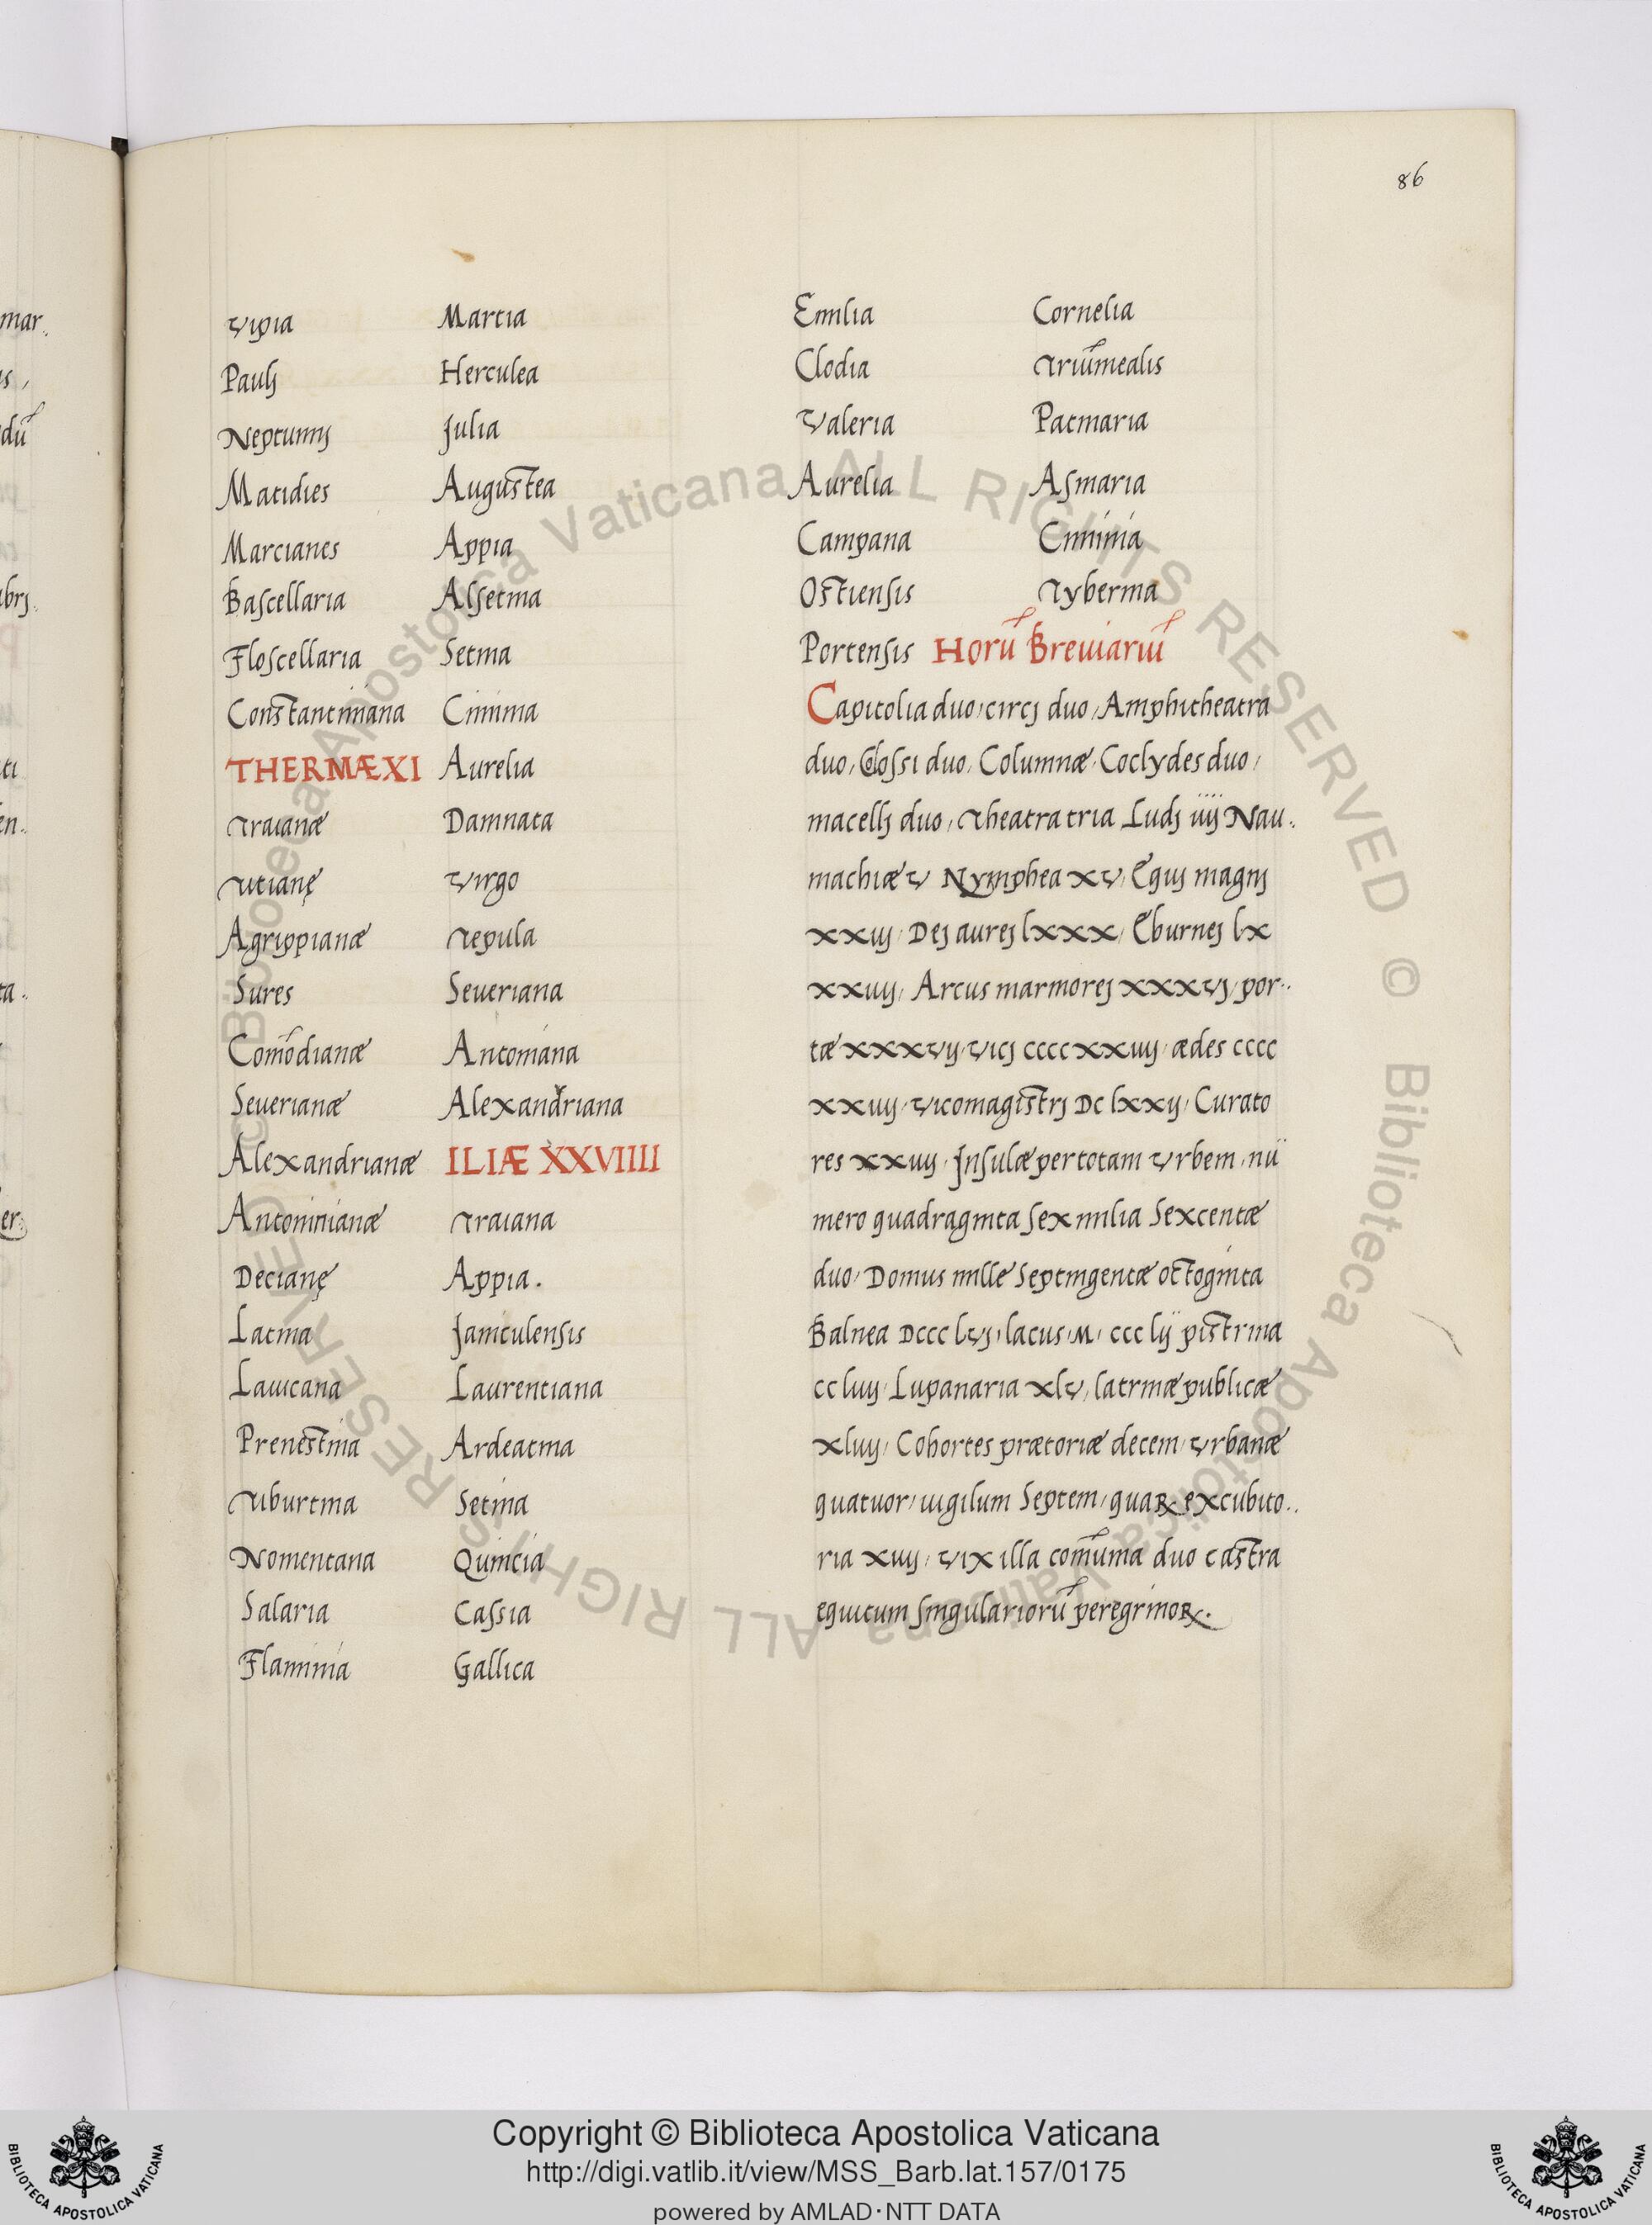 86
Vlpia
Paulj
Neptunnj
Matidies
Marcianes
Bascellaria
Floscellaria
Constantiniana
THERMÆ XI
Traianæ
Titianę
Agrippianæ
Sures
Comōdianæ
Seuerianæ
Alexandrianæ
Antoninianæ
Decianę
Latina
Lauicana
Prenestina
Tiburtina
Nomentana
Salaria
Flaminia
Martia
Herculea
Julia
Augustea
Appia
Alsetina
Setina
Ciminia
Aurelia
Damnata
Virgo
Tepula
Seueriana
Antoniana
Alexandriana
ILIÆ XXVIIII
Traiana
Appia.
Janiculensis
Laurentiana
Ardeatina
Setina
Quincia
Cassia
Gallica
Emilia
Clodia
Valeria
Aurelia
Campana
Ostiensis
Portensis
Cornelia
Triūmealis
Patinaria
Asinaria
Ciminia
Tyberina
Horū Breuiariū
Capitolia duo, circj duo, Amphitheatra
duo, Colossi duo, Columnæ Coclydes duo,
macellj duo, Theatra tria Ludj iiij Nau..
machiæ v Nymphea xv, Equj magnj
xxiij, Dej aurej lxxx, Eburnej lx
xxiiij, Arcus marmorej xxxvj, por..
tæ xxxvij, vicj cccc xxiiij, ædes cccc
xxiiij, vicomagistrj Dc lxxij, Curato
res xxiiij, Jnsulæ per totam vrbem, nū
mero quadraginta sex milia sexcentæ
duo, Domus mille septingentæ octoginta
Balnea Dccc lvj, lacus, M, ccc lij pistrina
cc liiij, Lupanaria xlv, latrinæ publicæ
xliiij, Cohortes prætoriæ decem, vrbanæ
quatuor, uigilum septem, quaꝝ excubito..
ria xiiij, vixilla comūnia duo castra
equitum singulariorū peregrinoꝝ.
Copyright © Biblioteca Apostolica Vaticana
http://digi.vatlib.it/view/MSS_Barb.lat.157/0175
powered by AMLAD·NTT DATA